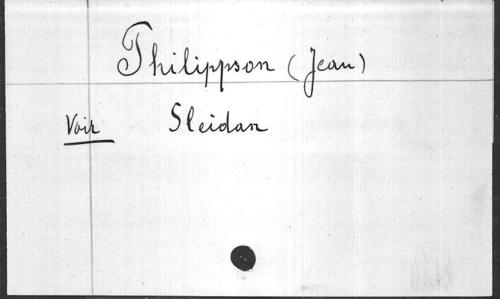 Philippson (Jean)
Voir Sleidan